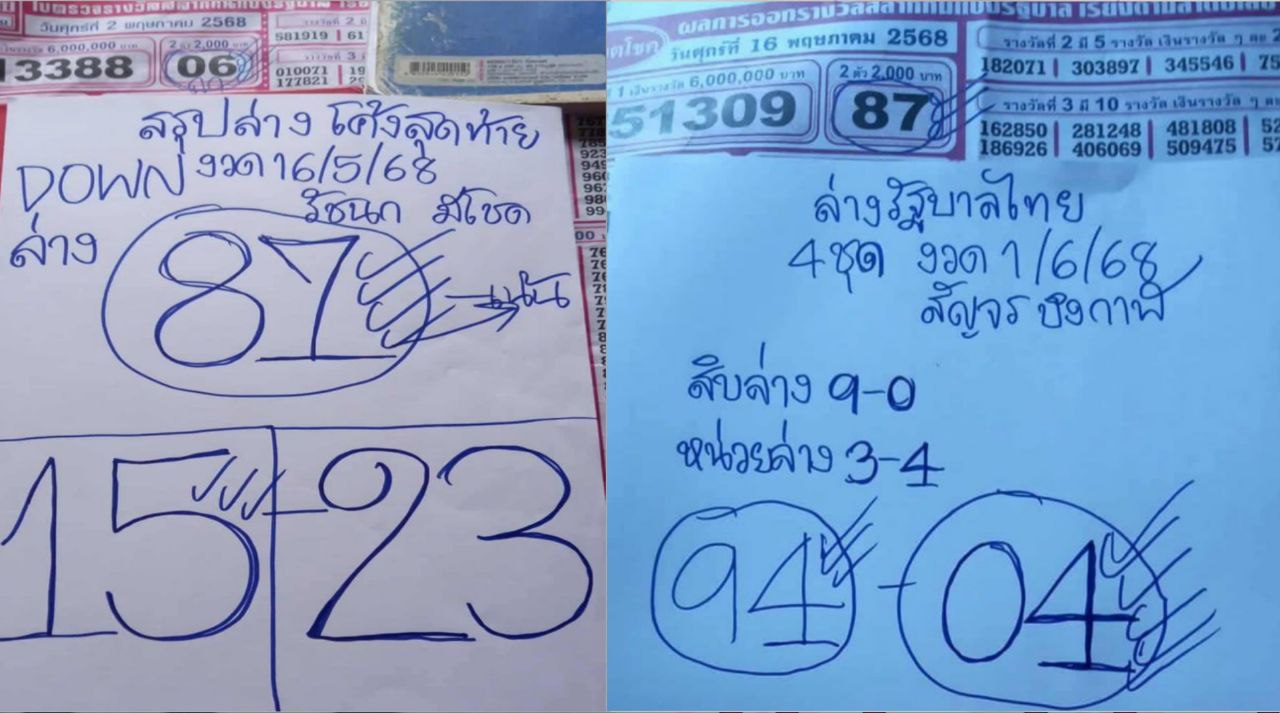 วันศุกร์ที่ 2 พฤษภาคม 2568
6,000,000 บาท
2 ตัว 2,000 บาท
รางวัลที่ 2 มี
581919 | 61
13388
06
รางวัลที่ 3
010071 | 19
177821 | 29
สรุปล่าง โค้งสุดท้าย
DOWN งวด 16/5/68
รัชนก มีโชค
ล่าง
87
เน้น
15 - 23
ผลการออกรางวัลสลากกินแบ่งรัฐบาล
วันศุกร์ที่ 16 พฤษภาคม 2568
ที่ 1 เงินรางวัล 6,000,000 บาท
2 ตัว 2,000 บาท
51309
87
รางวัลที่ 2 มี 5 รางวัล เงินรางวัล ๆ ละ 2
182071 | 303897 | 345546 | 75
รางวัลที่ 3 มี 10 รางวัล เงินรางวัล ๆ ละ
162850 | 281248 | 481808 | 52
186926 | 406069 | 509475 | 57
ล่างรัฐบาลไทย
4ชุด งวด 1/6/68
สัญจร บึงกาฬ
สิบล่าง 9-0
หน่วยล่าง 3-4
94 - 04